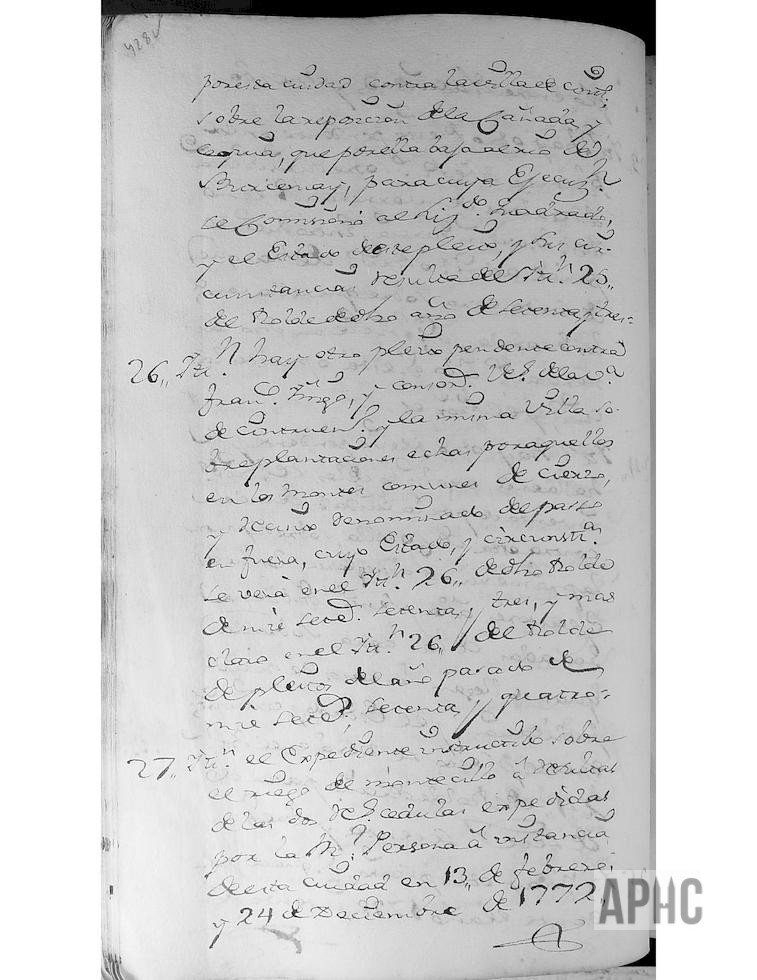 428v
por esta ciudad contra la villa de Cort.s
sobre la reposicion de la Cañada y
que por ella baja al rio de
para cuya Ejecuz.n
se Comisionó al
y el Estado de este pleito, y sus cir-
cunstancias resulta del Itt.n 25,,
del Rolde de dho año de setenta y tres=
26,, Itt.n hay otro pleito pendente contra
Fran.co y consort.s Vez.s de la v.a
de y la misma Villa so-
bre plantaciones echas por aquellos
en los montes comunes de cierzo,
y termino denominado del passo
en fuera, cuyo Estado, y circunst.as
se verá en el Itt.n 26,, de dho Rolde
de mil setec.s setenta, y tres, y mas
claro en el Itt.n 26,, del Rolde
de pleitos del año pasado de
mil setec.s, setenta, y quatro=
27,, Itt.n el Expediente instructibo sobre
el riego de montecibo á resultas
de las dos R.s cedulas expedidas
por la R.l Persona á instancia
de esta ciudad en 13,, de febrero,
y 24 de Deciembre de 1772,
APHC